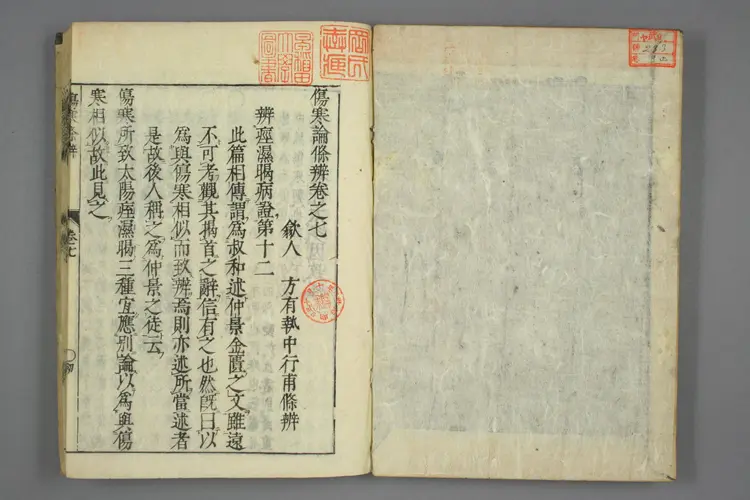 傷寒論條辨卷之七
歙人 方有執中行甫條辨
辨痙濕暍病證第十二
此篇相傳謂爲叔和述仲景金匱之文雖遠
不可考觀其揭首之辭信有之也然旣曰以
爲與傷寒相似而致辨焉則亦述所當述者
是故後人稱之爲仲景之徒云
傷寒所致太陽痙濕暍三種宜應别論以爲與傷
寒相似故此見之
傷寒條辨
卷七